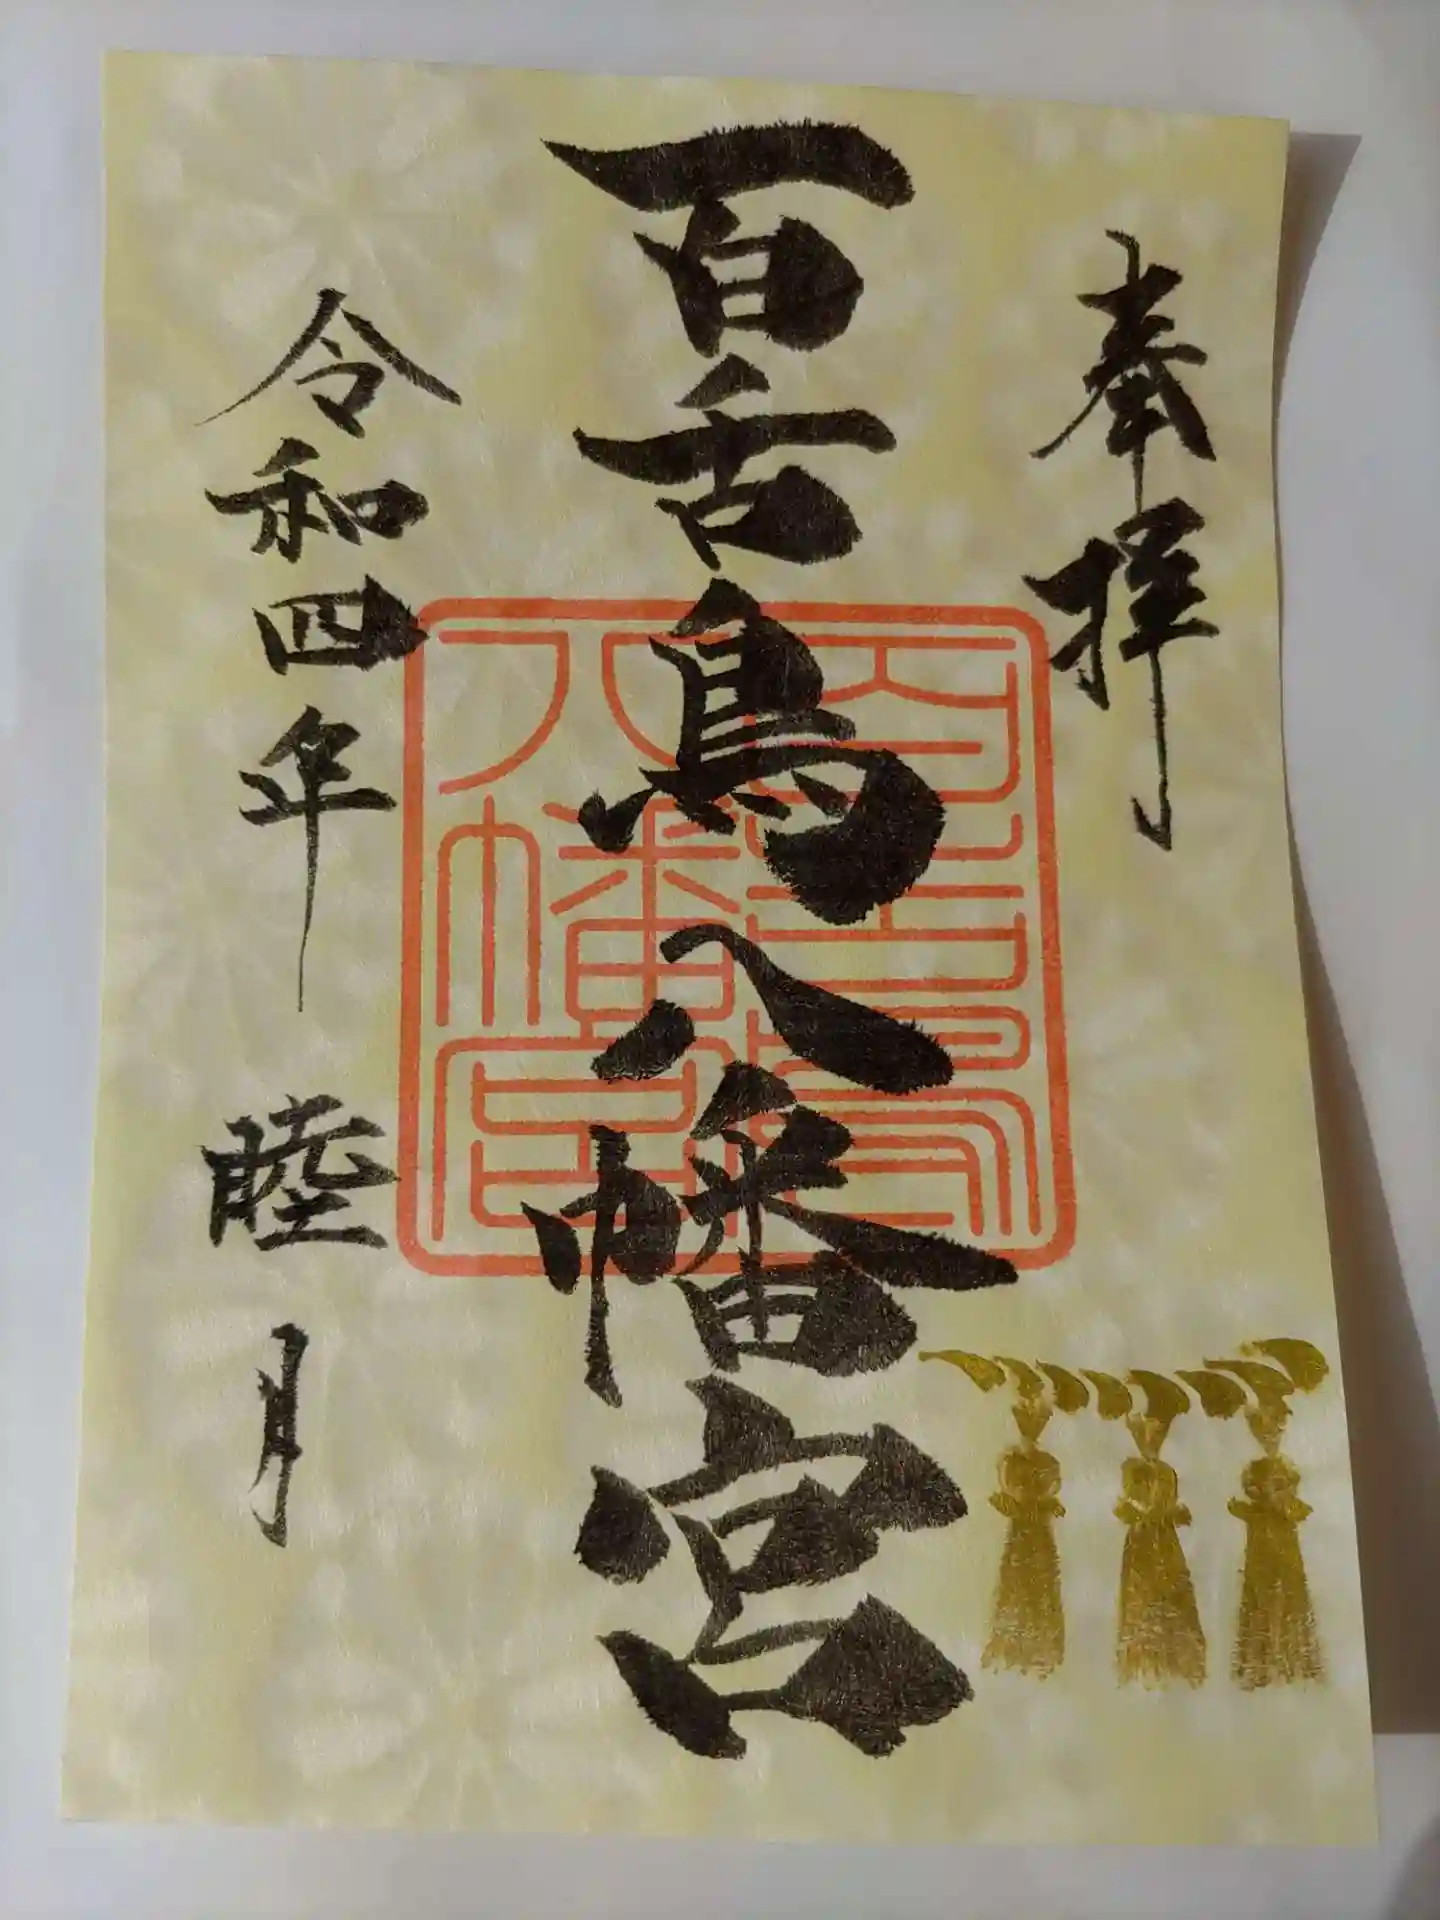 奉拝
百舌鳥八幡宮
百舌鳥
八幡宮
令和四年 睦月